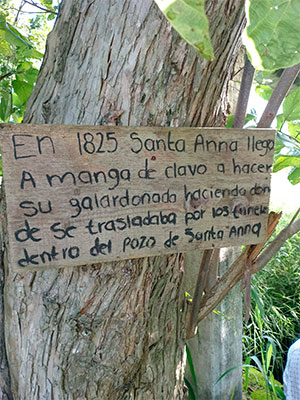 En 1825 Santa Anna llego
A manga de clavo a hacer
su galardonada hacienda don
de se trasladaba por los tunele
dentro del pozo de Santa Anna